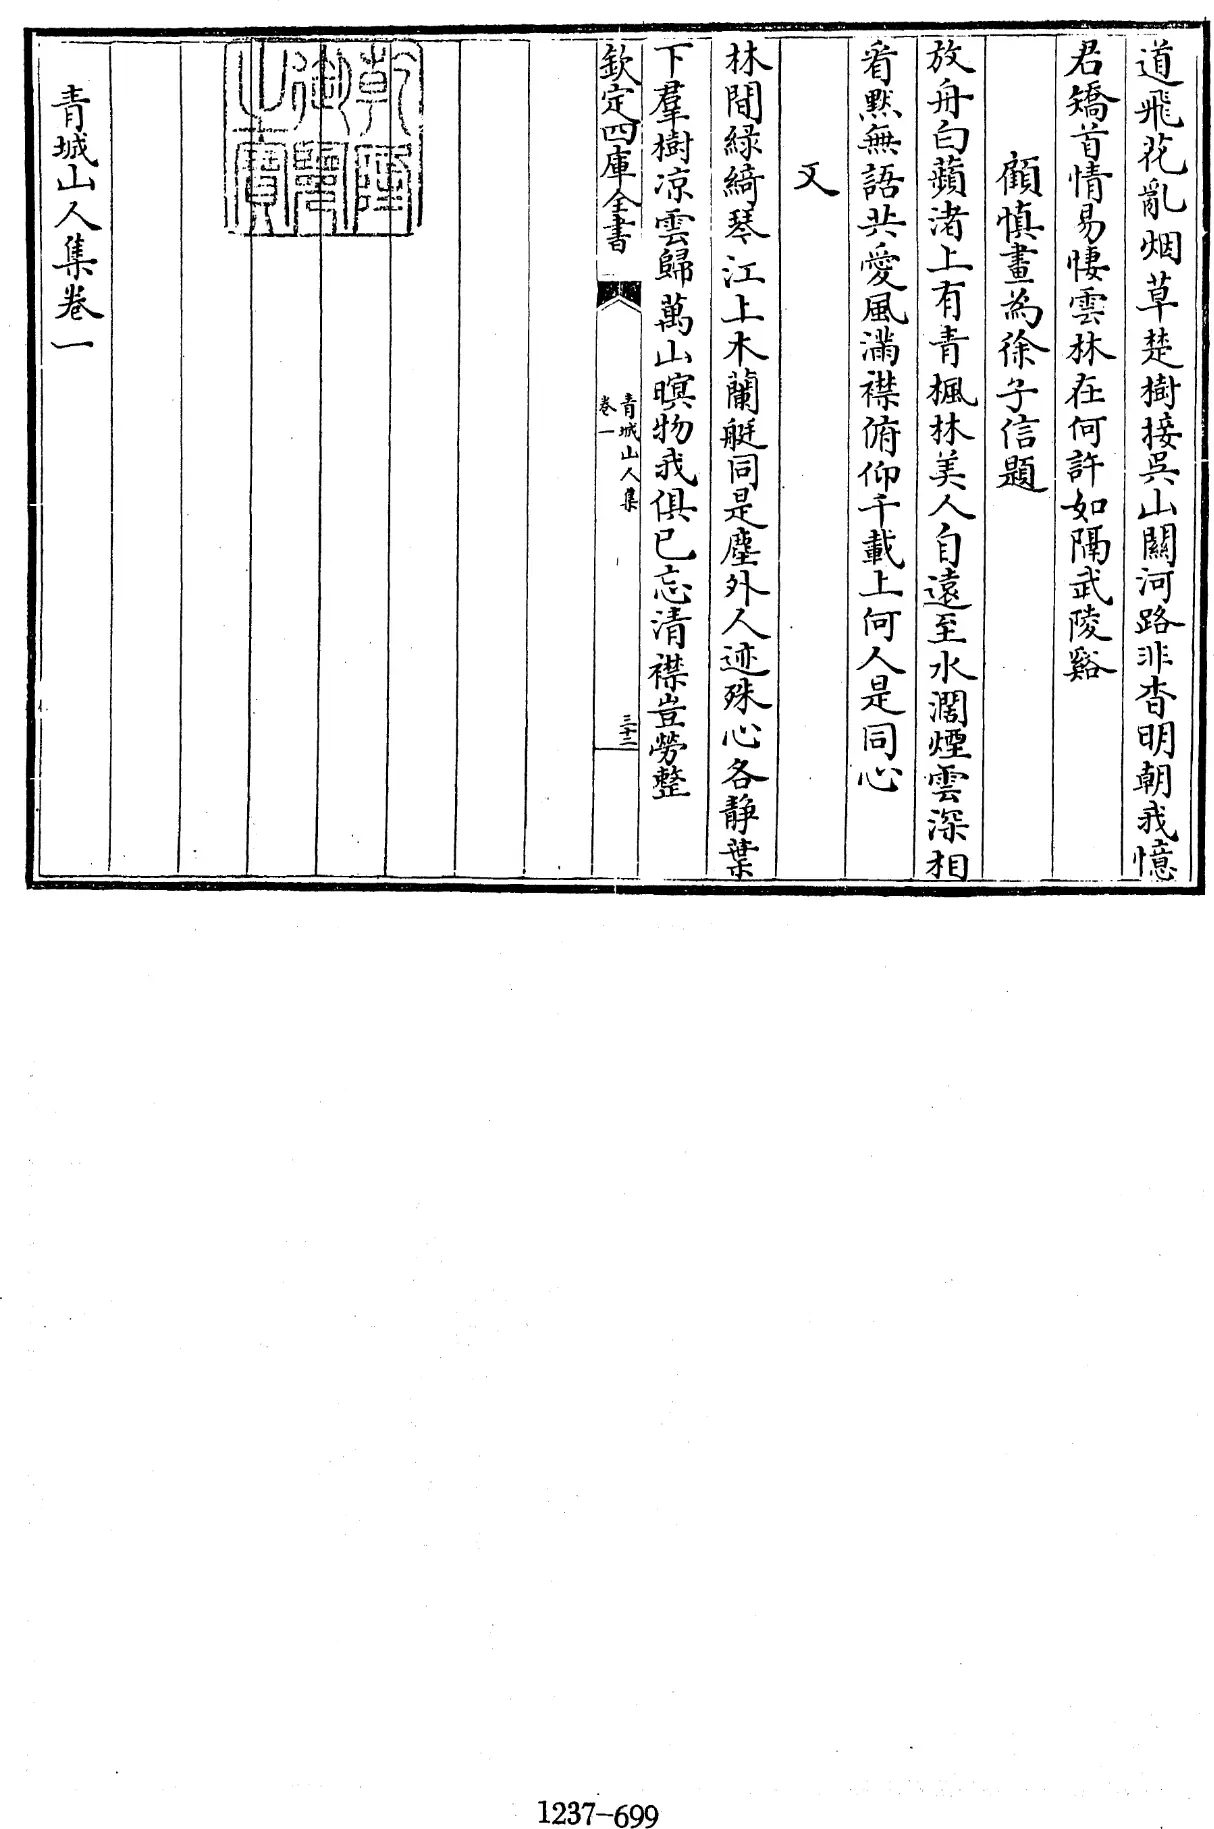 道飛花亂烟草楚樹接吳山關河路非杳明朝我憶
君矯首情易悽雲林在何許如隔武陵谿
顧慎畫為徐子信題
放舟白蘋渚上有青楓林美人自遠至水濶煙雲深相
看默無語共愛風滿襟俯仰千載上何人是同心
又
林間綠綺琴江上木蘭艇同是塵外人迹殊心各靜葉
下羣樹凉雲歸萬山暝物我俱已忘清襟豈勞整
欽定四庫全書
青城山人集
卷一
三十二
乾隆
御覽
之寶
青城山人集卷一
1237-699